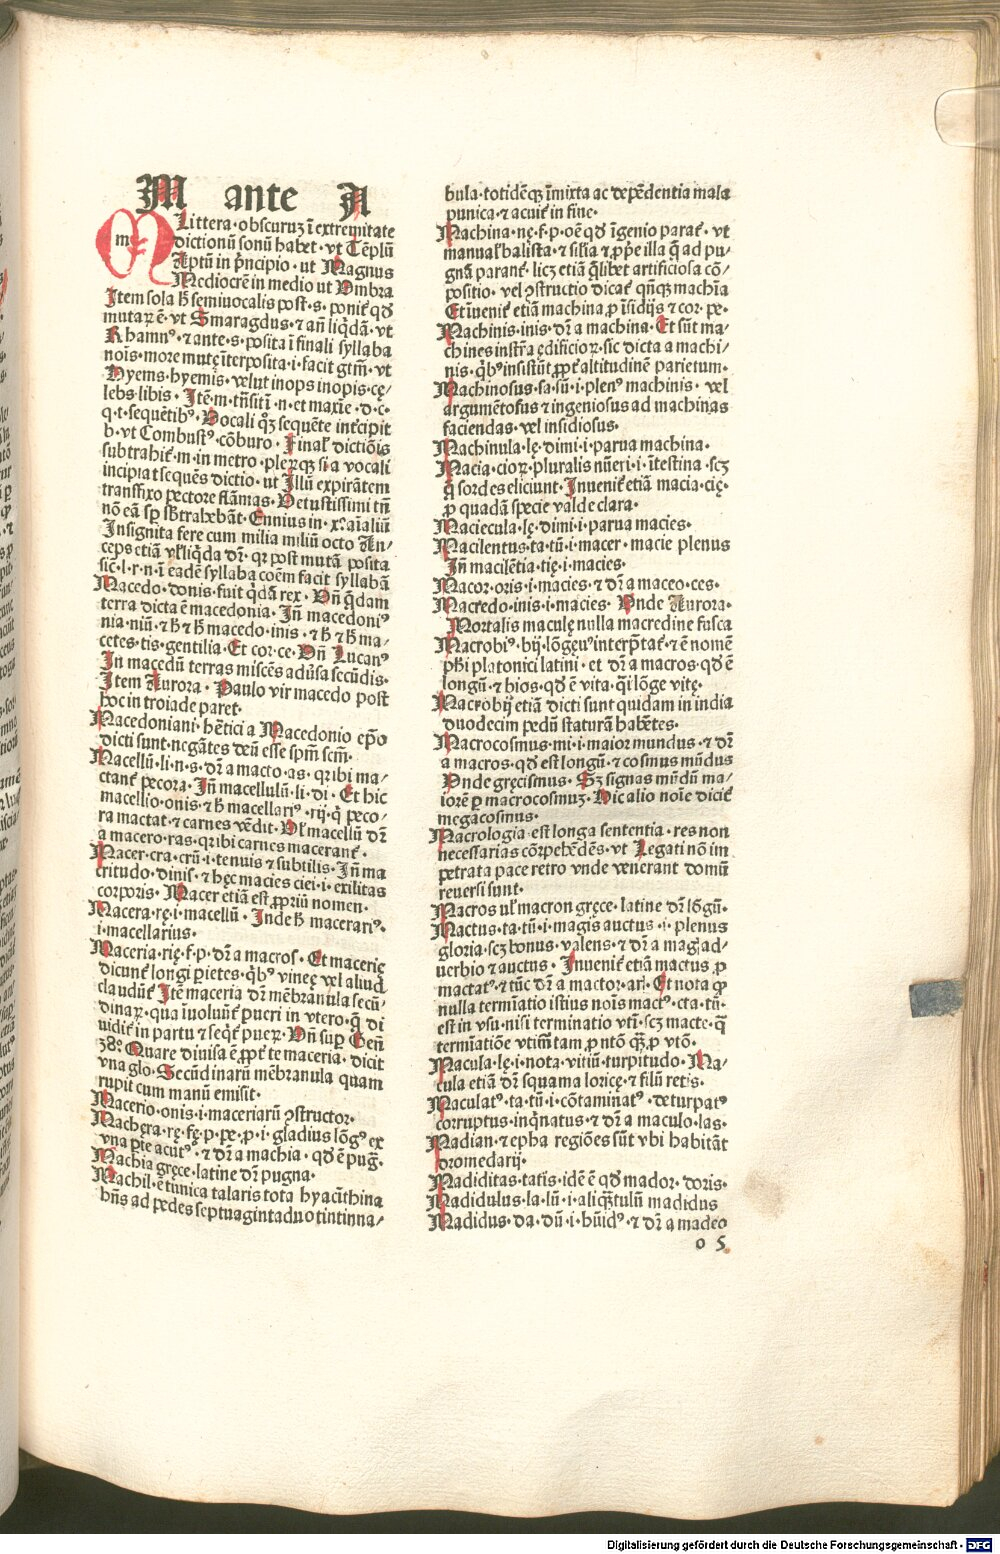 M ante A
M Littera·obscuruz ī extremitate
dictionū sonū habet·vt Tēplū
Aptū in p̄ncipio·ut Magnus
Mediocrē in medio ut Umbra
Item sola hꝰ semiuocalis post·s·poniť qđ
mutaꝝ ē·vt Smaragdus·⁊ añ liq̄dā·vt
Rhamnꝰ·⁊ ante·s·posita ī finali syllaba
noīs·more mutę īterposita·i·facit gtm̄·vt
Hyems·hyemis·velut inops inopis·cę/
lebs libis· Itē·m·tn̄sitī·n·et maxīe·d·c·
q·t·sequētibꝰ·Uocali qꝫ sequēte int̄cipit
b·vt Combustꝰ·cōburo·Finaľ dictiōis
subtrahiť·m·in metro·pleꝝqꝫ si a vocali
incipiat sequēs dictio·ut Illū expirātem
transfixo pectore flāmas·Uetustissimi tn̄
nō eā sp̄ sb̄trahebāt·Ennius in·x·aīaliū
Insignita fere cum milia miliū octo An/
ceps etiā vľ liq̄da dr̄·qꝛ post mutā posita
sic·l·r·n·ī eadē syllaba coēm facit syllabā
Macedo·donis·fuit q̄dā rex·Un̄ q̄dam
terra dicta ē macedonia·Iñ macedoniꝰ
nia·niū·⁊ hꝰ ⁊ hꝰ macedo·inis·⁊ hꝰ ⁊ hꝰ ma/
cetes·tis·gentilia·Et cor·ce·Un̄ Lucanꝰ
In macedū terras miscēs aduſa secūdis·
Item Aurora·Paulo vir macedo post
hoc in troiade paret·
Macedoniani·hētici a Macedonio ep̄o
dicti sunt·negātes deū esse spm̄ scm̄·
Macellū·li·n·s·dr̄ a macto·as·qꝛ ibi ma/
ctanť pecora·Iñ macellulū·li·di·Et hic
macellio·onis·⁊ hꝰ macellariꝰ·rij·q̄ peco/
ra mactat ⁊ carnes vēdit·Uľ macellū dr̄
a macero·ras·qꝛ ibi carnes macerant̄·
Macer·cra·crū·i·tenuis ⁊ subtilis·Iñ ma
critudo·dinis·⁊ hęc macies·ciei·i·exilitas
corporis·Macer etiā est ꝓpriū nomen·
Macera·rę·i·macellū·Inde hꝰ macerariꝰ·
i·macellarius·
Maceria·rię·f·p·dr̄ a macros·Et macerię
dicunť longi pietes·q̄bꝰ vineę vel aliud
claudūť Itē maceria dr̄ mēbranula secū/
dinaꝝ·qua īuoluūť pueri in vtero·q̄ di
uidiť in partu ⁊ seqť pueꝝ·Un̄ suꝑ Gen̄
38°·Quare diuisa ē ꝓpť te maceria·dicit
vna glo·Secūdinarū mēbranula quam
rupit cum manū emisit·
Macerio·onis·i·maceriarū ꝯstructor·
Machęra·rę·fę·p·pe·ꝓ·i·gladius lōgꝰ ex
vna pte acutꝰ·⁊ dr̄ a machia·qđ ē pug̃·
Machia gręce·latine dr̄ pugna·
Machil·ē tunica talaris tota hyacīthina
hn̄s ad pedes septuagintaduo tintinna/
bula·totidēqꝫ īmixta ac depēdentia mala
punica·⁊ acuiť in fine·
Machina·nę·f·p·oē qđ īgenio paraŕ·vt
manuaľ balista·⁊ siľia ⁊ ꝓpe illa q̄ ad pu/
gnā parant̄·licꝫ etiā q̄libet artificiosa cō/
positio·vel ꝯstructio dicať qn̄qꝫ machīa
Et īuenit̄ etiā machina ꝓ īsidijs ⁊ cor·pe·
Machinis·inis·dr̄ a machina·Et sūt ma/
chines instr̄a ędificioꝝ·sic dicta a machi/
nis·q̄bꝰ insistūt ꝓpť altitudinē parietum·
Machinosus·sa·sū·i·plenꝰ machinis·vel
argumētosus ⁊ ingeniosus ad machinas
faciendas·vel insidiosus·
Machinula·lę·dimi·i·parua machina·
Macia·cioꝝ·pluralis nūeri·i·ītestina·scꝫ
q̄ sordes eliciunt·Inuenit̄ etiā macia·cię·
ꝓ quadā specie valde clara·
Maciecula·lę·dimi·i·parua macies·
Macilentus·ta·tū·i·macer·macie plenus
Iñ macilētia·tię·i·macies·
Macor·oris·i·macies·⁊ dr̄ a maceo·ces·
Macredo·inis·i·macies·Unde Aurora·
Mortalis maculę nulla macredine fusca
Macrobiꝰ·bij·lōgeuꝰ interp̄tať·⁊ ē nomē
ph̄i platonici latini·et dr̄ a macros·qđ ē
longū·⁊ bios·qđ ē vita·q̄i lōge vitę·
Macrobij etiā dicti sunt quidam in india
duodecim pedū staturā habētes·
Macrocosmus·mi·i·maior mundus·⁊ dr̄
a macros·qđ est longū·⁊ cosmus mūdus
Unde gręcismus·Sꝫ signas mūdū ma/
iorē ꝑ macrocosmuz·Hic alio noīe diciť
megacosmus·
Macrologia est longa sententia·res non
necessarias cōrpehēdēs·vt Legati nō im
petrata pace retro vnde venerant domū
reuersi sunt·
Macros uľ macron gręce·latine dr̄ lōgū·
Mactus·ta·tū·i·magis auctus·i·plenus
gloria·scꝫ bonus·valens·⁊ dr̄ a maḡ ad/
uerbio ⁊ auctus·Inuenit̄ etiā mactus ꝓ
mactatꝰ·⁊ tūc dr̄ a mactor·ar̄·Et nota qꝫ
nulla termīatio istius noīs mactꝰ·cta·tū·
est in vsu·nisi terminatio vtī·scꝫ macte·q̄
termīatiōe vtimur tam ꝓ ntō q̄ꝫ·ꝓ vtō·
Macula·lę·i·nota·vitiū·turpitudo·Ma/
cula etiā dr̄ squama loricę·⁊ filū retis·
Maculatꝰ·ta·tū·i·cōtaminatꝰ·deturpatꝰ
corruptus·inq̄natus·⁊ dr̄ a maculo·las·
Madian·⁊ epha regiōes sūt vbi habitāt
dromedarij·
Madiditas·tatis·idē ē qđ mador·doris·
Madidulus·la·lū·i·aliq̄stulū madidus
Madidus·da·dū·i·hūidꝰ·⁊ dr̄ a madeo
o 5
Digitalisierung gefördert durch die Deutsche Forschungsgemeinschaft · DFG